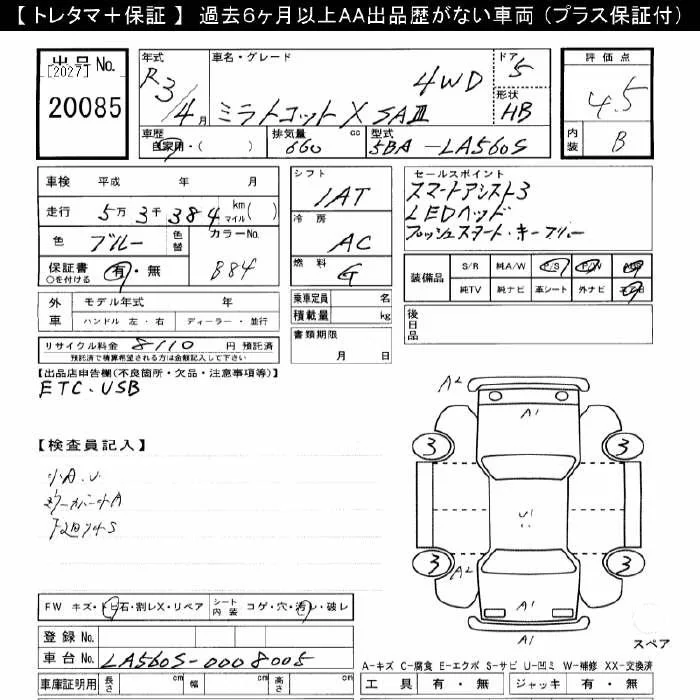 【 トレタマ＋保証 】 過去６ヶ月以上ＡＡ出品歴がない車両（プラス保証付）
出品No.
[2027]
20085
年式
R3/4月
車名・グレード
4WD
ミラトコット X SAⅢ
ドア
5
形状
HB
車歴
自家用・( )
排気量
660 cc
型式
5BA-LA560S
評価点
4.5
内装
B
車検 平成 年 月
走行 5万3千384 km マイル( )
色 ブルー 色替
カラーNo.
B84
保証書 ○を付ける 有・無
外車 モデル年式 年
ハンドル 左・右 ディーラー・並行
リサイクル料金 8110 円 預託済
預託済で精算希望される方は金額記入して下さい
シフト
IAT
冷房
AC
燃料
G
乗車定員 名
積載量 kg
書類期限
月 日
セールスポイント
スマートアシスト3
LEDヘッド
プッシュスタート・キーフリー
装備品
S/R 純A/W P/S P/W
純TV 純ナビ 革シート 外ナビ
後日品
【出品店申告欄(不良箇所・欠品・注意事項等)】
ETC・USB
【検査員記入】
小A.U
下廻りサS
A2
A1
3
3
U1
3
3
A2
A1
A1
スペア
FW キズ・トビ石・割レX・リペア
シート内装 コゲ・穴・汚レ・破レ
登録No.
車台No. LA560S-0008005
車庫証明用 長さ cm 幅 cm 高さ cm
A-キズ C-腐食 E-エクボ S-サビ U-凹ミ W-補修 XX-交換済
工具 有・無 ジャッキ 有・無